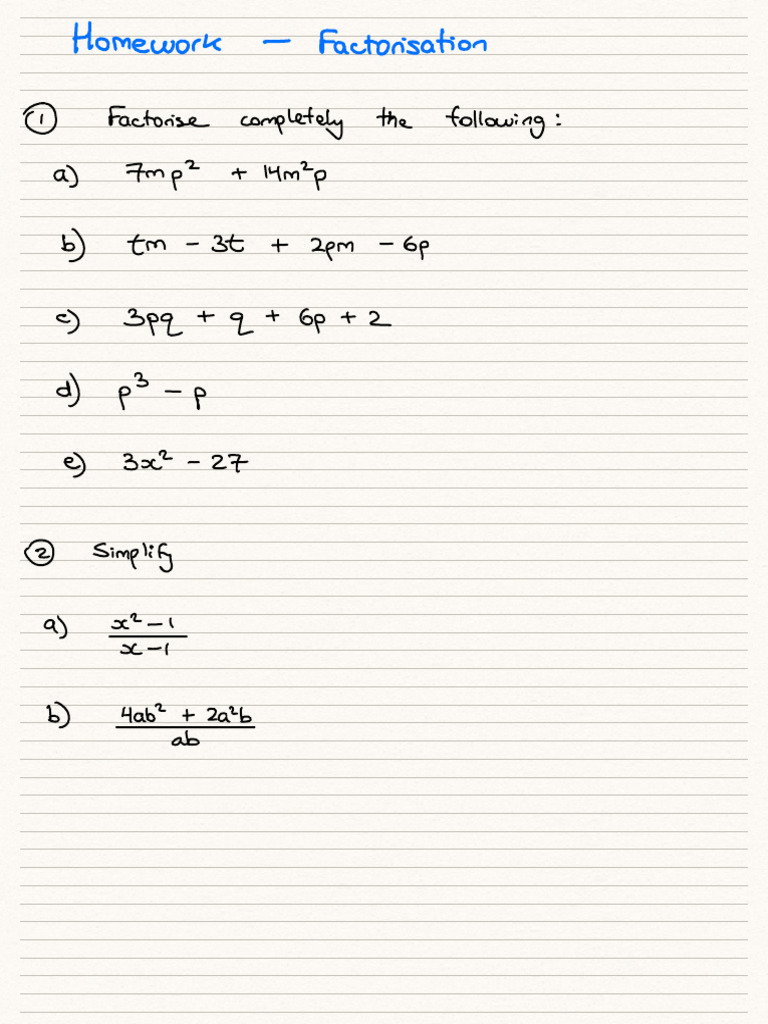 Homework — Factorisation
① Factorise completely the following:
a) 7mp² + 14m²p
b) tm - 3t + 2pm - 6p
c) 3pq + q + 6p + 2
d) p³ - p
e) 3x² - 27
② Simplify
a) x² - 1
x - 1
b) 4ab² + 2a²b
ab